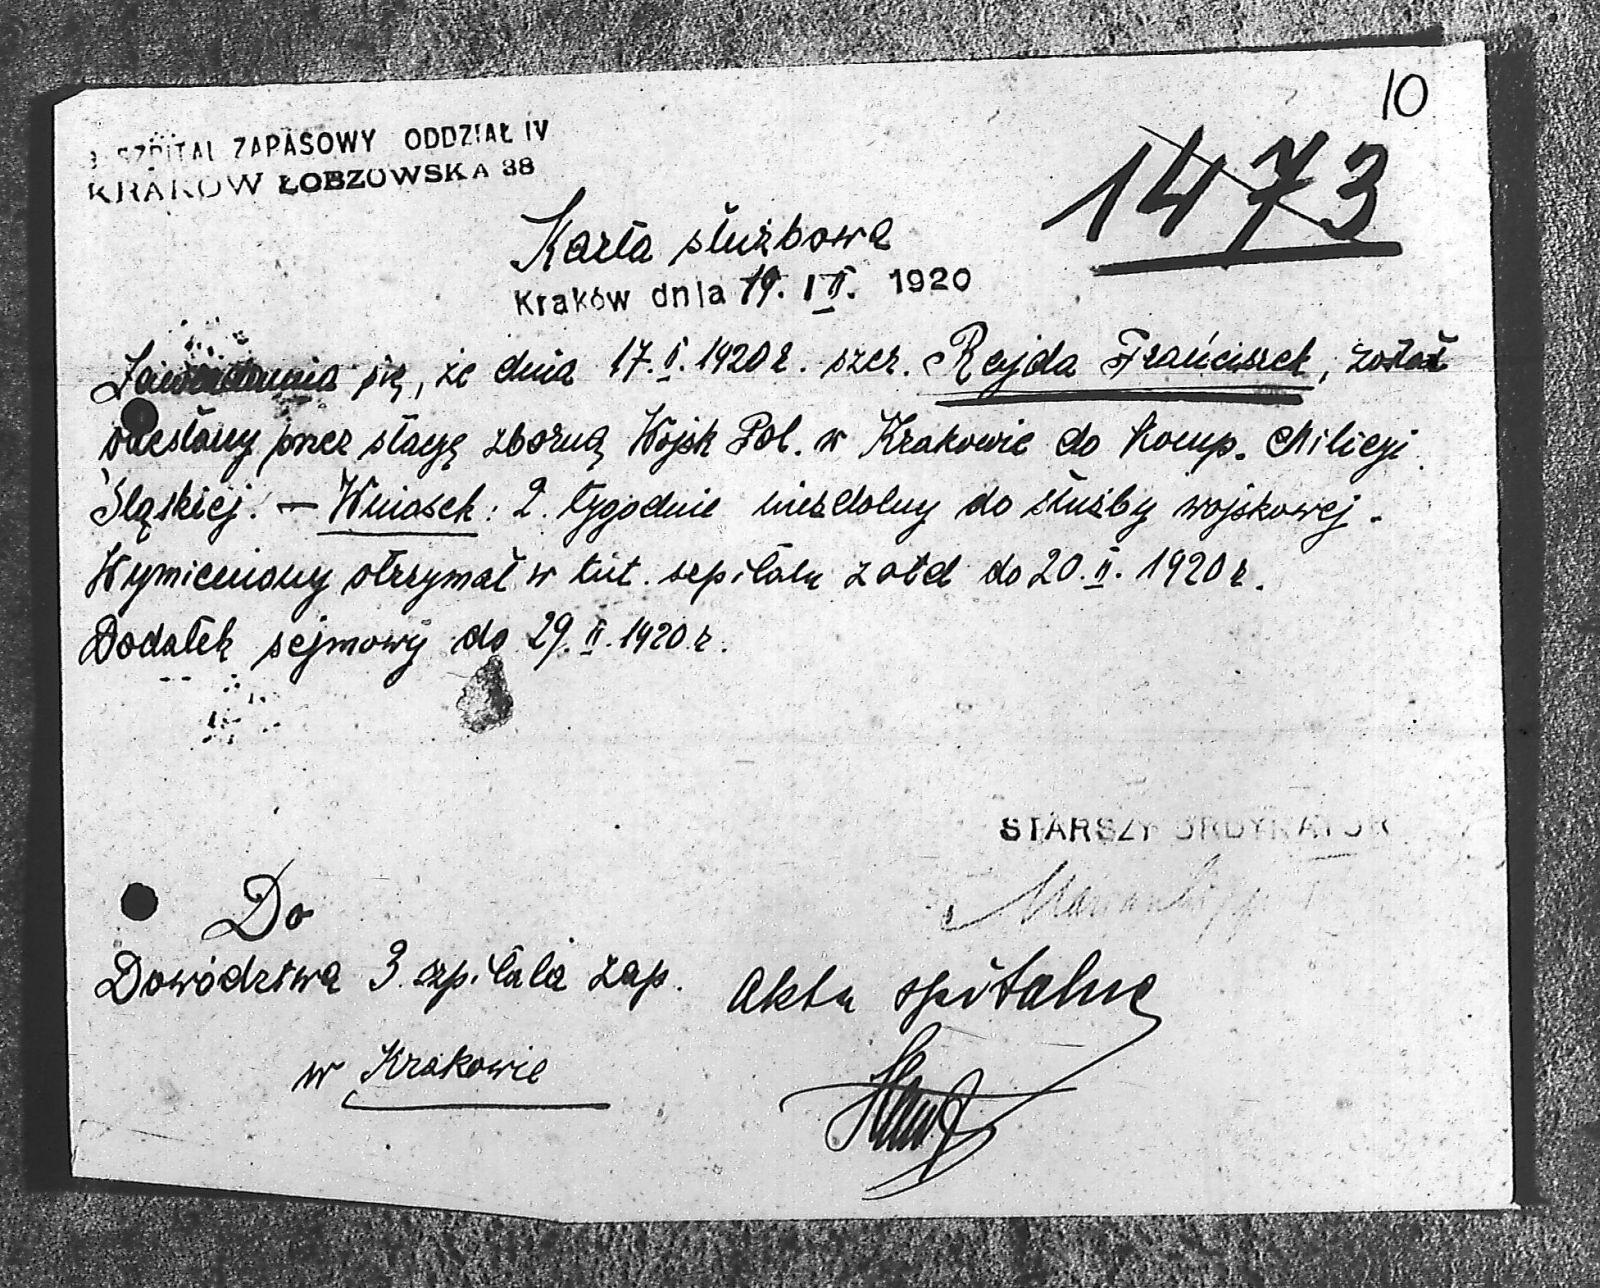 10
SZPITAL ZAPASOWY ODDZIAŁ IV
KRAKÓW ŁOBZOWSKA 38
1473
Karta służbowa
Kraków dnia 19. II. 1920
Zawiadamia się, że dnia 17.II.1920 r. szer. Rejda Frańciszek, został
odesłany przez stację zborną Wojsk Pol. w Krakowie do Komp. Milicyi
Śląskiej. — Wniosek: 2. tygodnie niezdolny do służby wojskowej.
Wymieniony otrzymał w tut. szpitalu żołd do 20.II.1920 r.
Dodatek sejmowy do 29.II.1920.r.
STARSZY ORDYNATOR
Do
Dowództwa 3. szpitala zap.
w Krakowie
Akta szpitalne